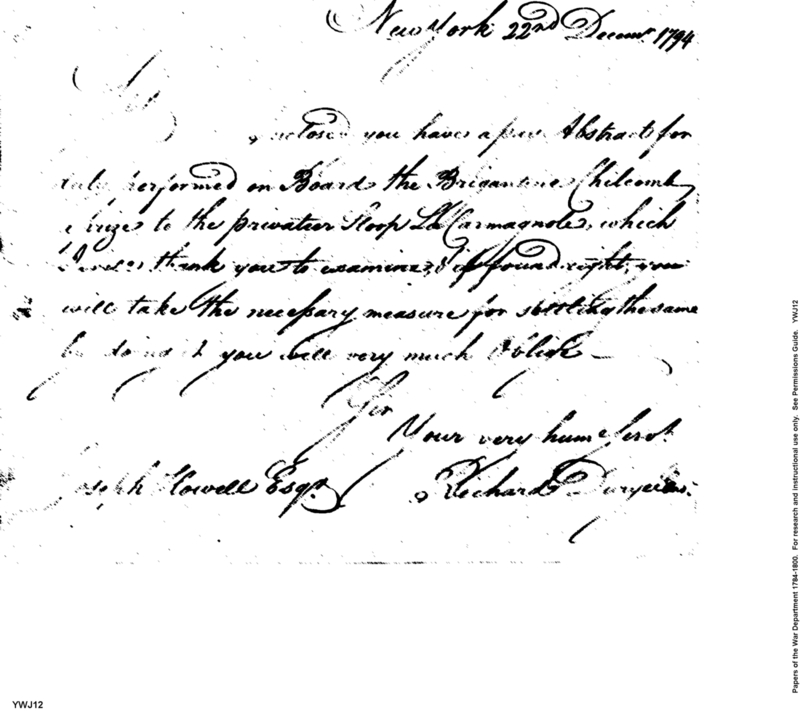 New York 22nd Decemr. 1794
Sir
Enclosed you have a pair Abstracts for
duty performed on Board the Brigantine Chilcomb
a prize to the privatier Sloop La Carmagnole, which
I will thank you to examine, & if found right, you
will take the necessary measure for settling the same
by doing it you will very much Oblige —
Sir
Your very hume Servt.
Joseph Howell Esqr.
Richard
Papers of the War Department 1784-1800. For research and instructional use only. See Permissions Guide. YWJ12
YWJ12